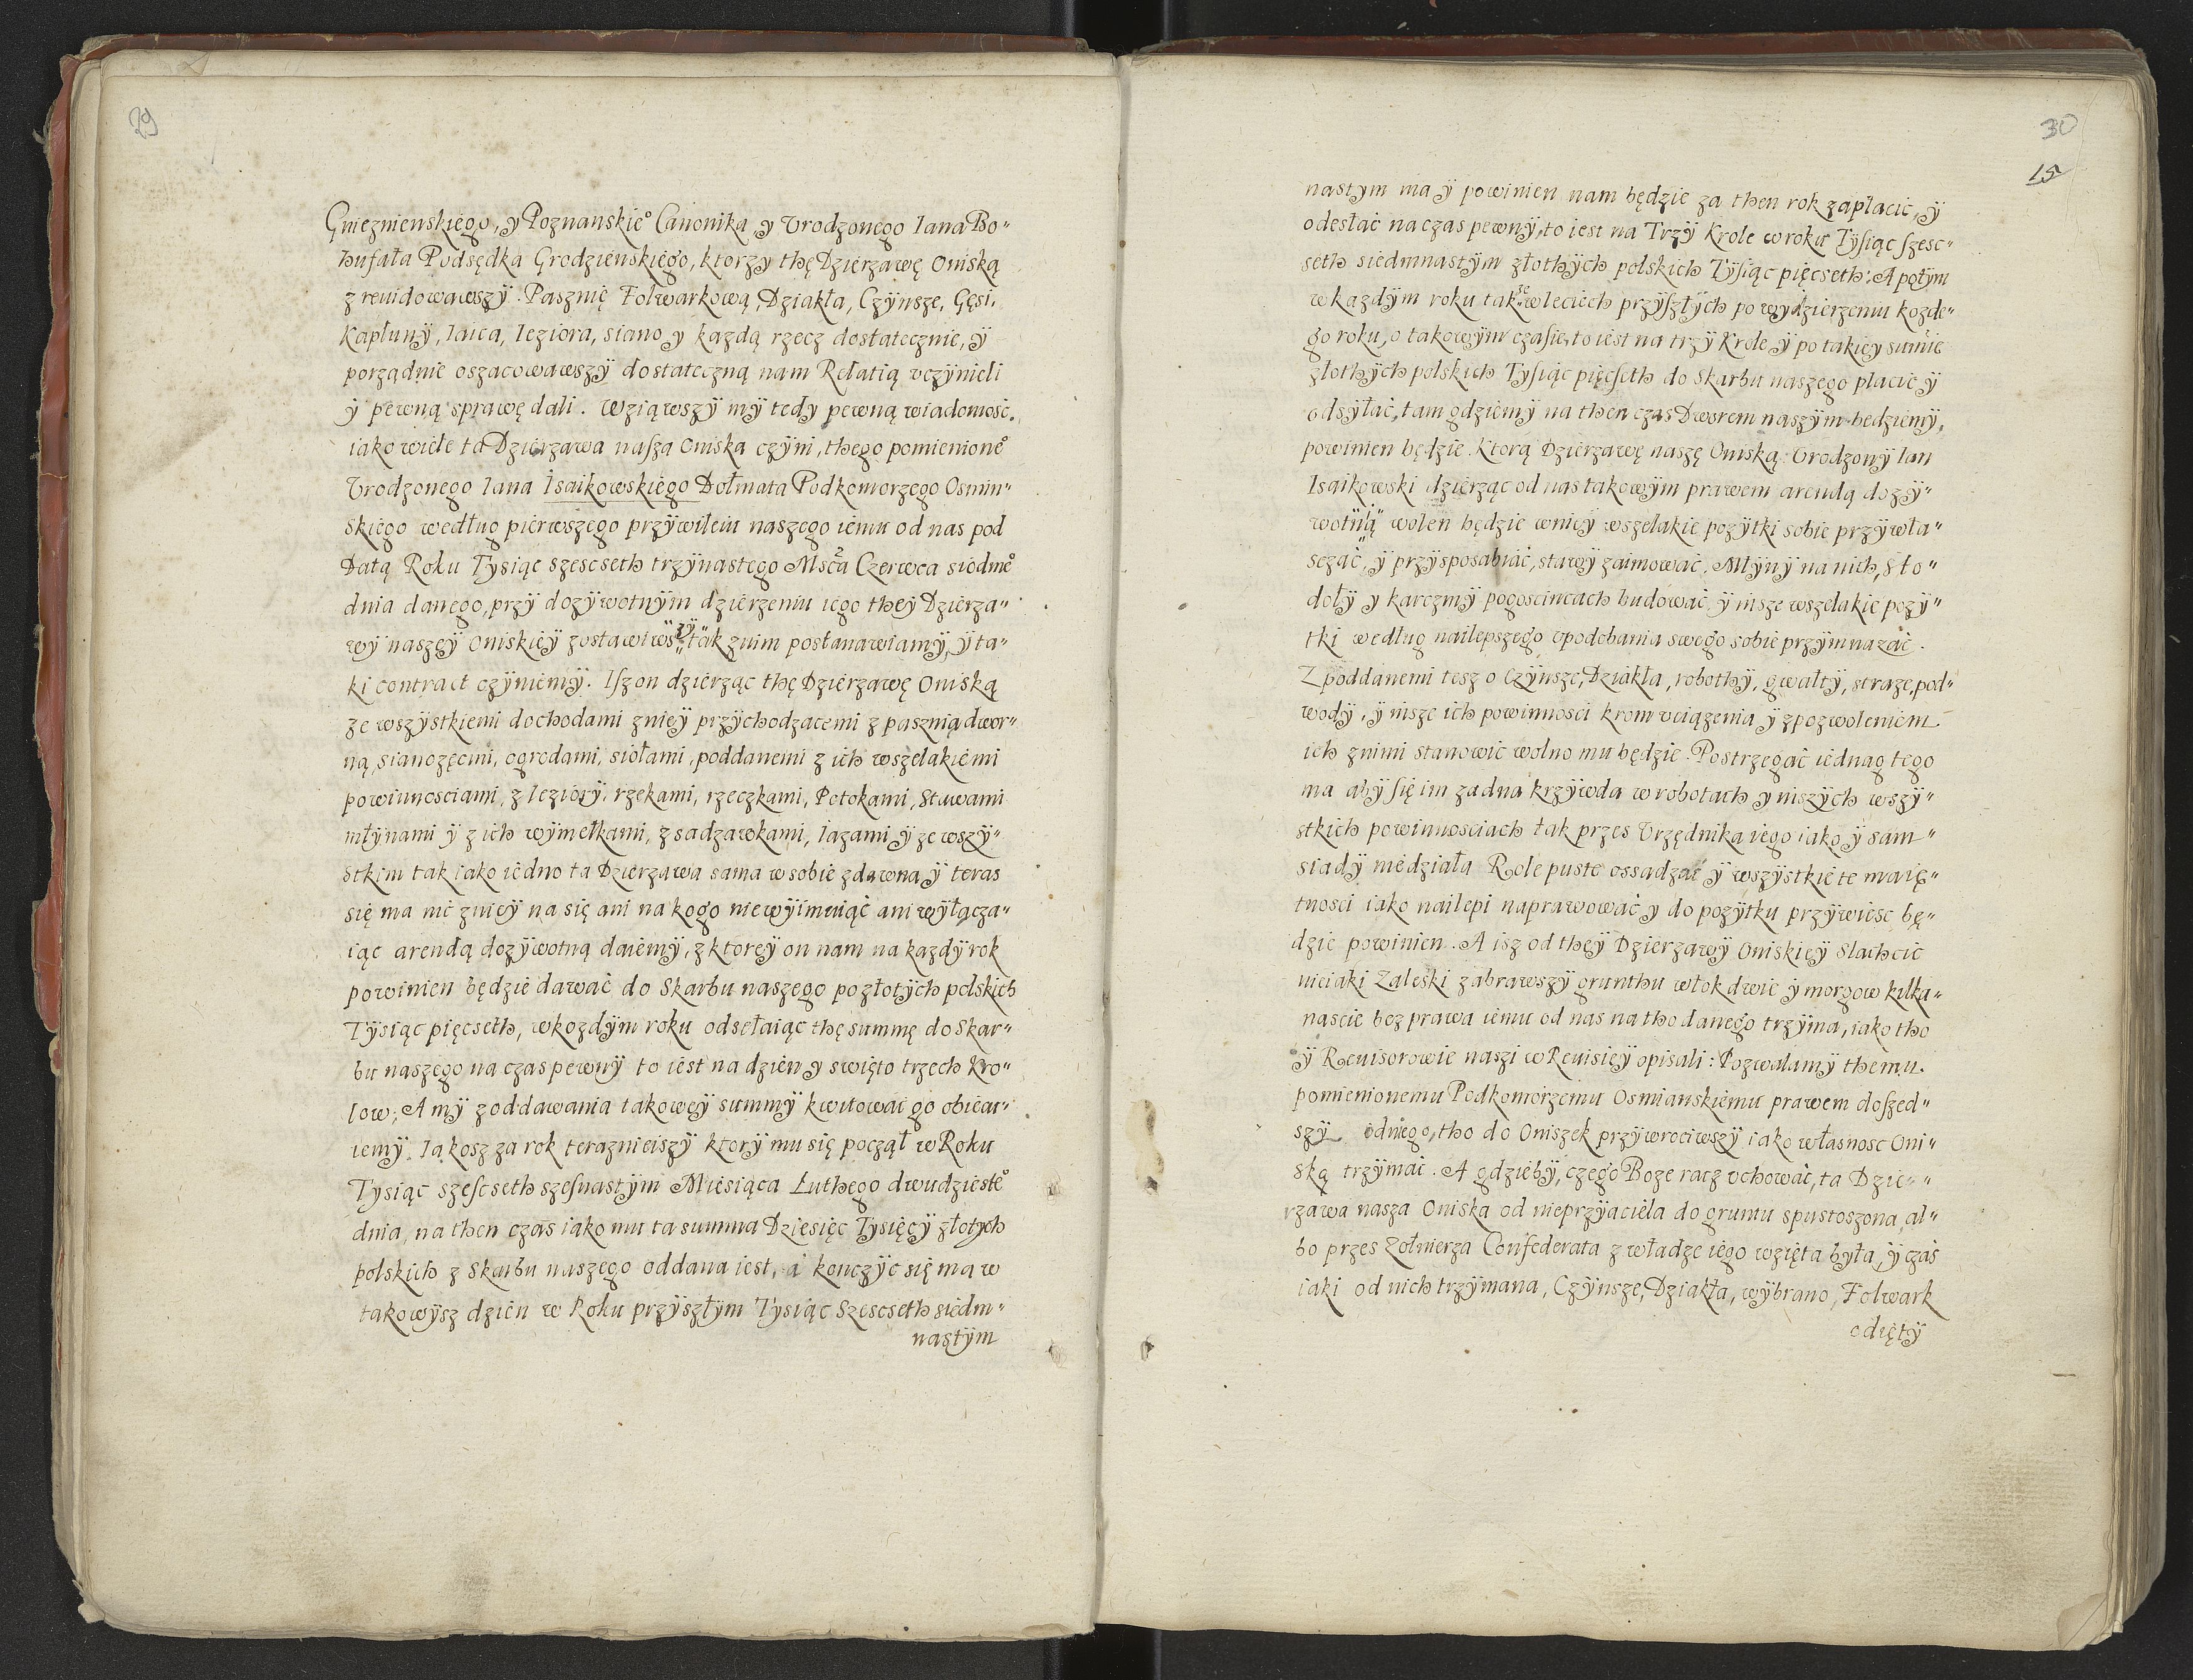 29
Gnieznienskiego, y Poznanskie° Canonika y Vrodzonego Iana Bo„
hufała Podsędka Grodzienskiego, ktorzy thę Dzierzawę Oniską
zreuidowawszÿ. Pasznię Folwarkową, Dziakła, Czÿnsze, Gęsi,
Kapłunÿ, Iaica, Ieziora, siano y kazdą rzecz dostatecznie, ÿ
porządnie oszacowawszÿ dostateczną nam Relatią vczÿnieli
ÿ pewną sprawę dali. Wziąwszÿ mÿ tedy pewną wiadomosc.
iako wiele ta Dzierzawa nasza Oniska czÿni, thego pomienione°
Vrodzonego Iana Isaikowskiego Dołmata Podkomorzego Osmin„
skiego według pierwszego przÿwileiu naszego iemu od nas pod
Datą Roku Tysiąc szescseth trzÿnastego Msca Czerwca siodme°
dnia danego, przÿ dozÿwotnÿm dzierzeniu iego theÿ Dzierza„
wÿ naszeÿ Oniskieÿ zostawiwszÿ tak znim postanawiamÿ, ÿ ta„
ki contract czÿniemÿ. Iszon dzierząc thę Dzierzawę Oniską
ze wszÿstkiemi dochodami znieÿ przÿchodzacemi z pasznią dwor„
ną, sianozęcmi, ogrodami, siołami, poddanemi z ich wszelakiemi
powinnosciami, z Ieziorÿ, rzekami, rzeczkami, Potokami, Stawami
młÿnami ÿ z ich wÿmełkami, z sadzawkami, Iazami, ÿ ze wszÿ„
stkim tak iako iedno ta Dzierzawa sama w sobie zdawna, ÿ teras
się ma nic znieÿ na się ani na kogo niewÿimuiąc ani wÿłącza„
iąc arendą dozÿwotną daiemÿ, z ktoreÿ on nam na kazdÿ rok
powinien będzie dawac do Skarbu naszego po złotÿch polskich
Tÿsiąc pięcseth, wkozdÿm roku odsełaiąc thę summę do Skar„
bu naszego na czas pewnÿ to iest na dzien y swięto trzech Kro„
low; A mÿ z oddawania takoweÿ summÿ kwitowac go obiecu„
iemÿ. Iakosz za rok teraznieiszÿ ktorÿ mu się począł w Roku
Tysiąc szescseth szesnastÿm Miesiąca Luthego dwudzieste°
dnia, na then czas iako mu ta summa Dziesięc Tysięcÿ złotych
polskich z Skarbu naszego oddana iest, a konczÿc się ma w
takowÿsz dzien w Roku przÿszłÿm Tysiąc Szescseth siedm„
nastÿm
30
15
nastym ma ÿ powinien nam będzie za then rok zapłacic, ÿ
odesłac na czas pewnÿ, to iest na Trzÿ Krole w roku Tÿsiąc szesc„
seth siedmnastÿm złothÿch polskich Tÿsiąc pięcseth: A potÿm
w kazdÿm roku takse wleciech przÿszłÿch po wydzierzeniu kozde„
go roku, o takowÿm czasie, to iest na trzÿ Krole, ÿ po takieÿ sumie
złothÿch polskich Tÿsiąc pięcseth do Skarbu naszego placic ÿ
odsÿłac, tam gdziemÿ na then czas Dworem naszÿm bedziemÿ,
powinien będzie. Ktorą Dzierzawę naszę Oniską: Vrodzonÿ Ian
Isaikowski dzierząc od nas takowÿm prawem arendą dozÿ„
wotną wolen będzie wnieÿ wszelakie pozÿtki sobie przÿwła„
sczac, ÿ przÿsposabiac, stawÿ zaimowac, Młÿnÿ na nich, Sto„
dołÿ y karczmÿ pogoscincach budowac, ÿ insze wszelakie pozÿ„
tki według nailepszego vpodobania swego sobie przÿmnazac.
Zpoddanemi tesz o Czÿnsze, Dziakła, robothÿ, gwałtÿ, straze, pod„
wodÿ, ÿ insze ich powinnosci krom vciązenia ÿ zpozwoleniem
ich znimi stanowic wolno mu będzie. Postrzegac iednag tego
ma abÿ się im zadna krzÿwda w robotach y inszÿch wszÿ„
stkich powinnosciach tak przes Vrzędnika iego iako ÿ sam„
siadÿ niedziała Role puste ossadzac ÿ wszÿstkie te maię„
tnosci iako nailepi naprawowac y do pozÿtku przÿwiesc bę„
dzie powinien. A isz od theÿ Dzierzawÿ Oniskieÿ Slachcic
nieiaki Zaleski zabrawszÿ grunthu włok dwie ÿ morgow kilka„
nascie bez prawa iemu od nas na tho danego trzÿma, iako tho
ÿ Reuisorowie naszi w Reuisieÿ opisali: Pozwalamÿ themu
pomienionemu Podkomorzemu Osmianskiemu prawem doszed„
szÿ odniego, tho do Oniszek przÿwrociwszÿ iako własnosc Oni„
ską trzÿmac. A gdziebÿ, czego Boze racz vchowac, ta Dzie„
rzawa nasza Oniska od nieprzÿaciela do gruntu spustoszona, al„
bo przes Zołnierza Confederata z władze iego wzięta bÿła, ÿ czas
iaki od nich trzÿmana, Czÿnsze, Dziakła, wÿbrano, Folwark
odiętÿ